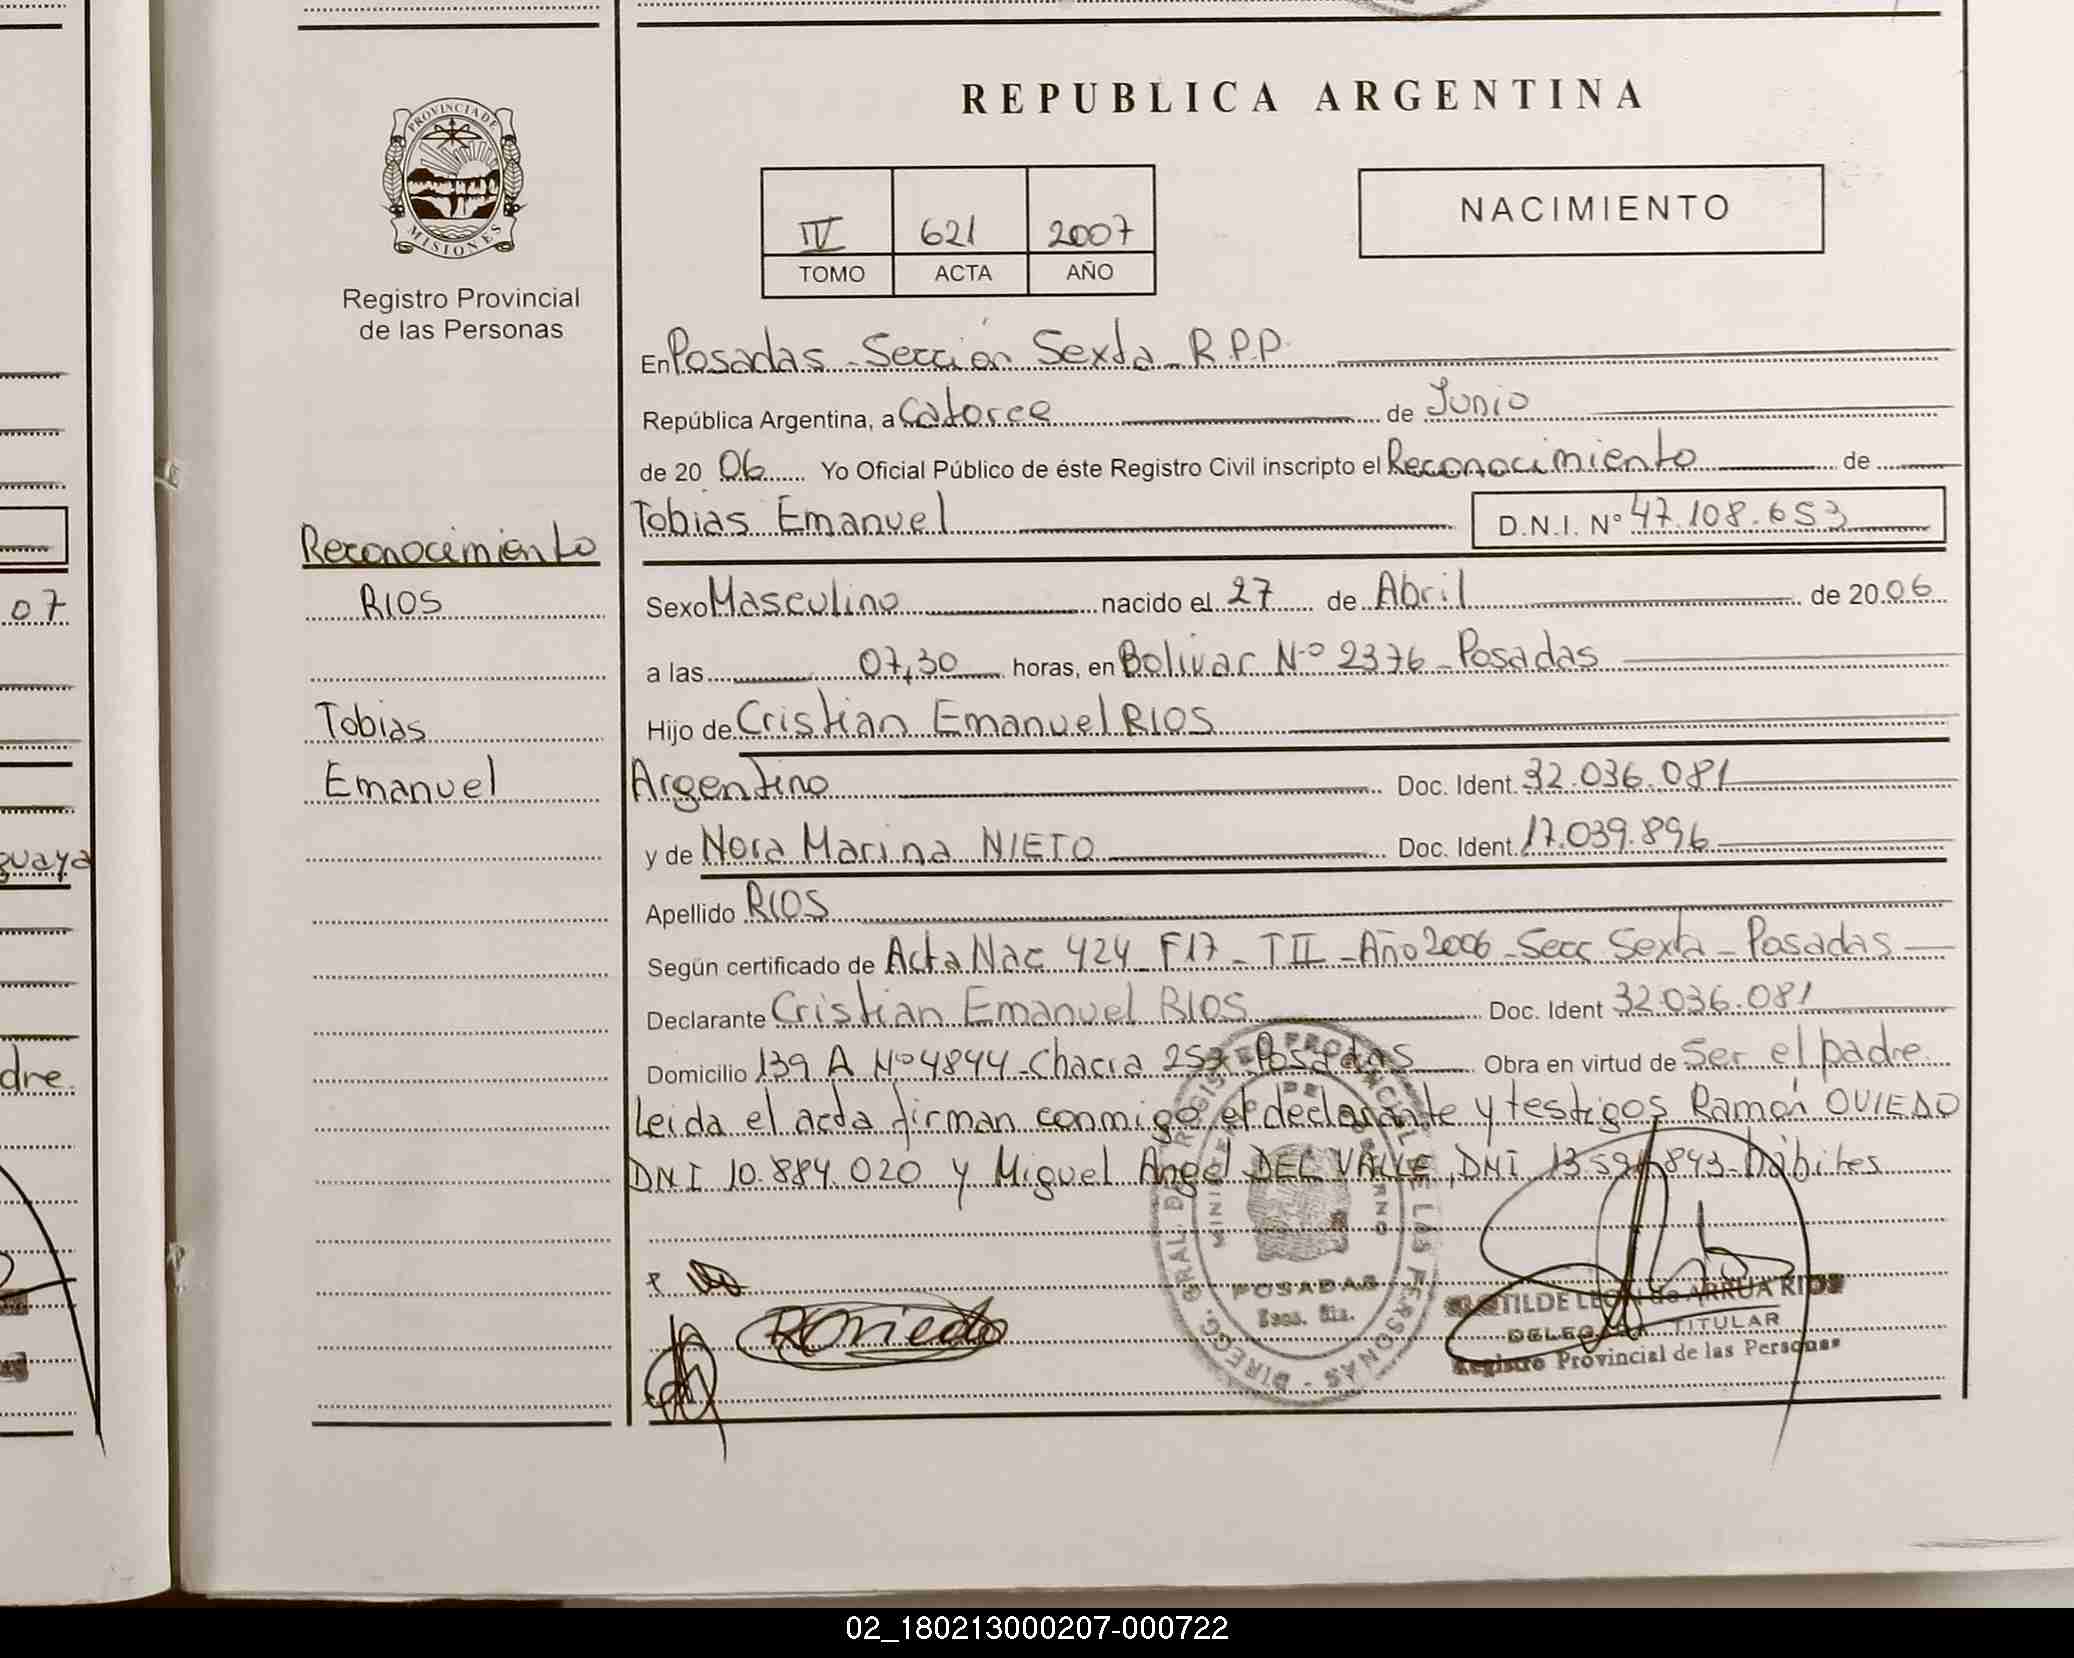 REPUBLICA ARGENTINA
PROVINCIA DE
MISIONES
Registro Provincial
de las Personas
IV 621 2007
TOMO ACTA AÑO
NACIMIENTO
En Posadas - Sección Sexta - R.P.P.
República Argentina, a Catorce de Junio
de 20 06 Yo Oficial Público de éste Registro Civil inscripto el Reconocimiento de
Tobias Emanuel D.N.I. Nº 47.108.653
Reconocimiento
RIOS
Tobias
Emanuel
Sexo Masculino nacido el 27 de Abril de 20 06
a las 07,30 horas, en Bolivar Nº 2376 - Posadas
Hijo de Cristian Emanuel RIOS
Argentino Doc. Ident. 32.036.081
y de Nora Marina NIETO Doc. Ident. 17.039.896
Apellido RIOS
Según certificado de Acta Nac 424 - F17 - TII - Año 2006 - Secc Sexta - Posadas
Declarante Cristian Emanuel RIOS Doc. Ident 32.036.081
Domicilio 139 A Nº 4844 - Chacra 253 - Posadas Obra en virtud de Ser el padre
Leida el acta firman conmigo el declarante y testigos Ramón OVIEDO
DNI 10.884.020 y Miguel Angel DEL VALLE, DNI hábiles
ROviedo
POSADAS
DELEGADA TITULAR
Registro Provincial de las Personas
07
guaya
dre.
02_180213000207-000722